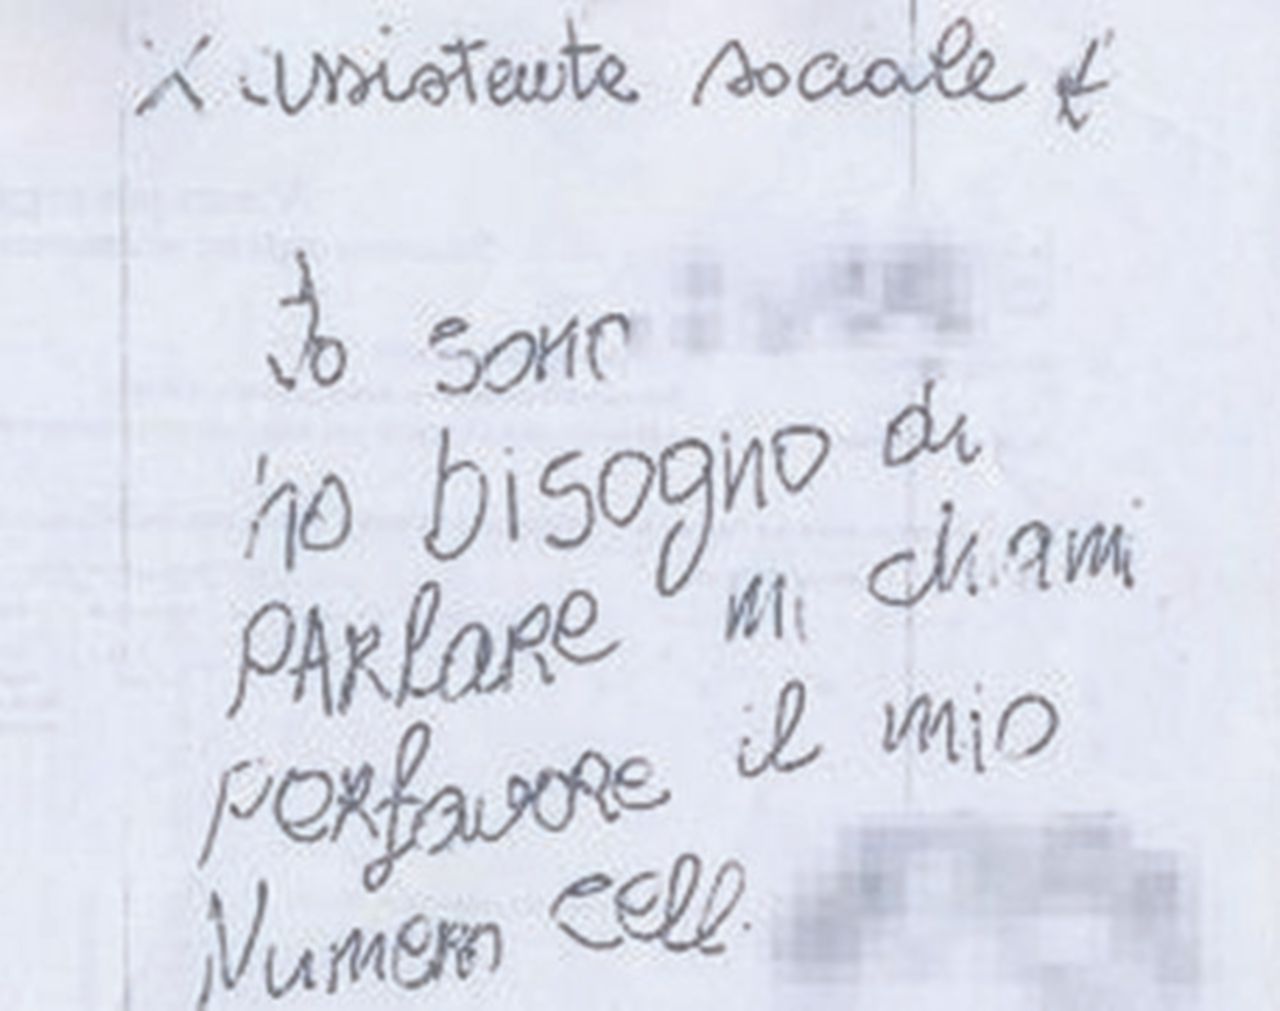 X assistente sociale
Io sono
ho bisogno di
PARlaRe mi chiami
perfavoRe il mio
Numero cell.